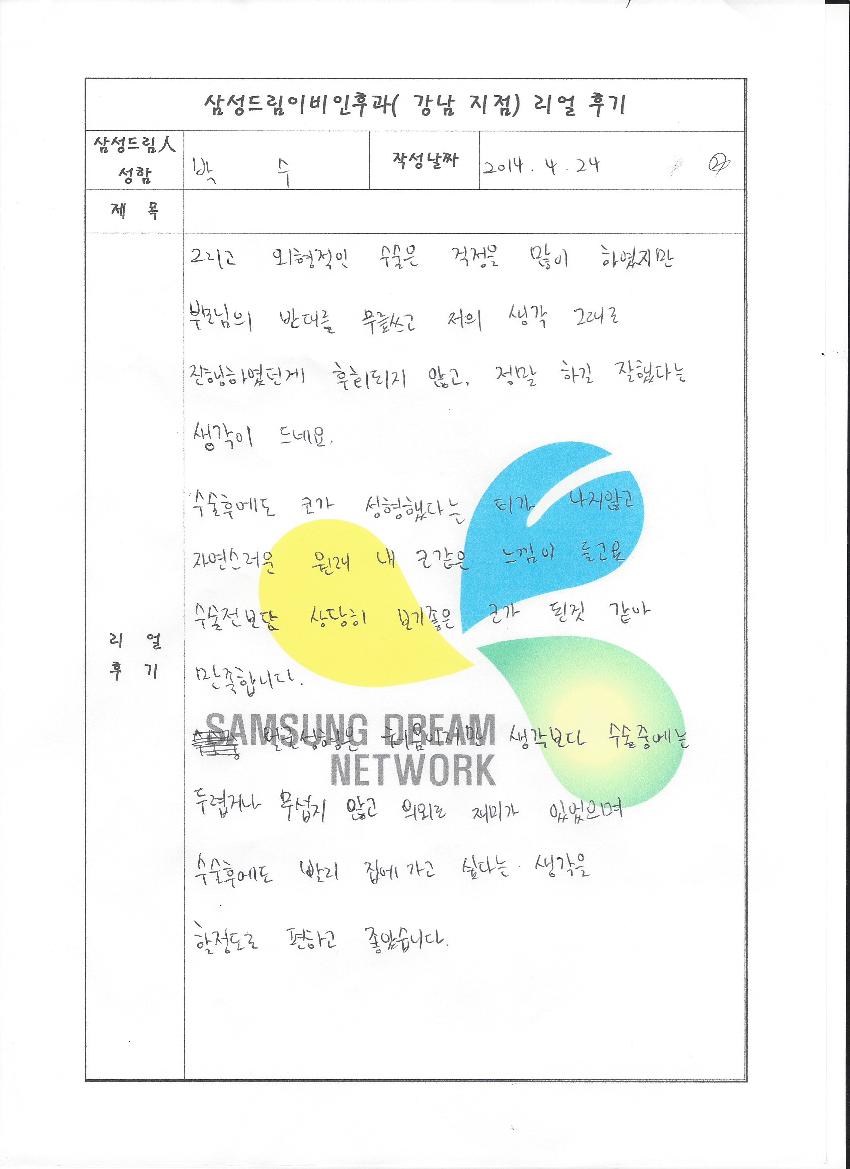 삼성드림이비인후과( 강남 지점) 리얼 후기
삼성드림人 성함 박 수 작성날짜 2014. 4. 24 ②
제 목
리 얼 후 기
그리고 외형적인 수술은 걱정을 많이 하였지만
부모님의 반대를 무릅쓰고 저의 생각 그대로
진행하였던게 후회되지 않고, 정말 하길 잘했다는
생각이 드네요.
수술후에도 코가 성형했다는 티가 나지않고
자연스러운 원래 내 코같은 느낌이 들고요
수술전보담 상당히 보기좋은 코가 된것 같아
만족합니다.
얼굴성형은 처음이지만 생각보다 수술중에는
두렵거나 무섭지 않고 의외로 재미가 있었으며
수술후에도 빨리 집에 가고 싶다는 생각을
할정도로 편하고 좋았습니다.
SAMSUNG DREAM
NETWORK